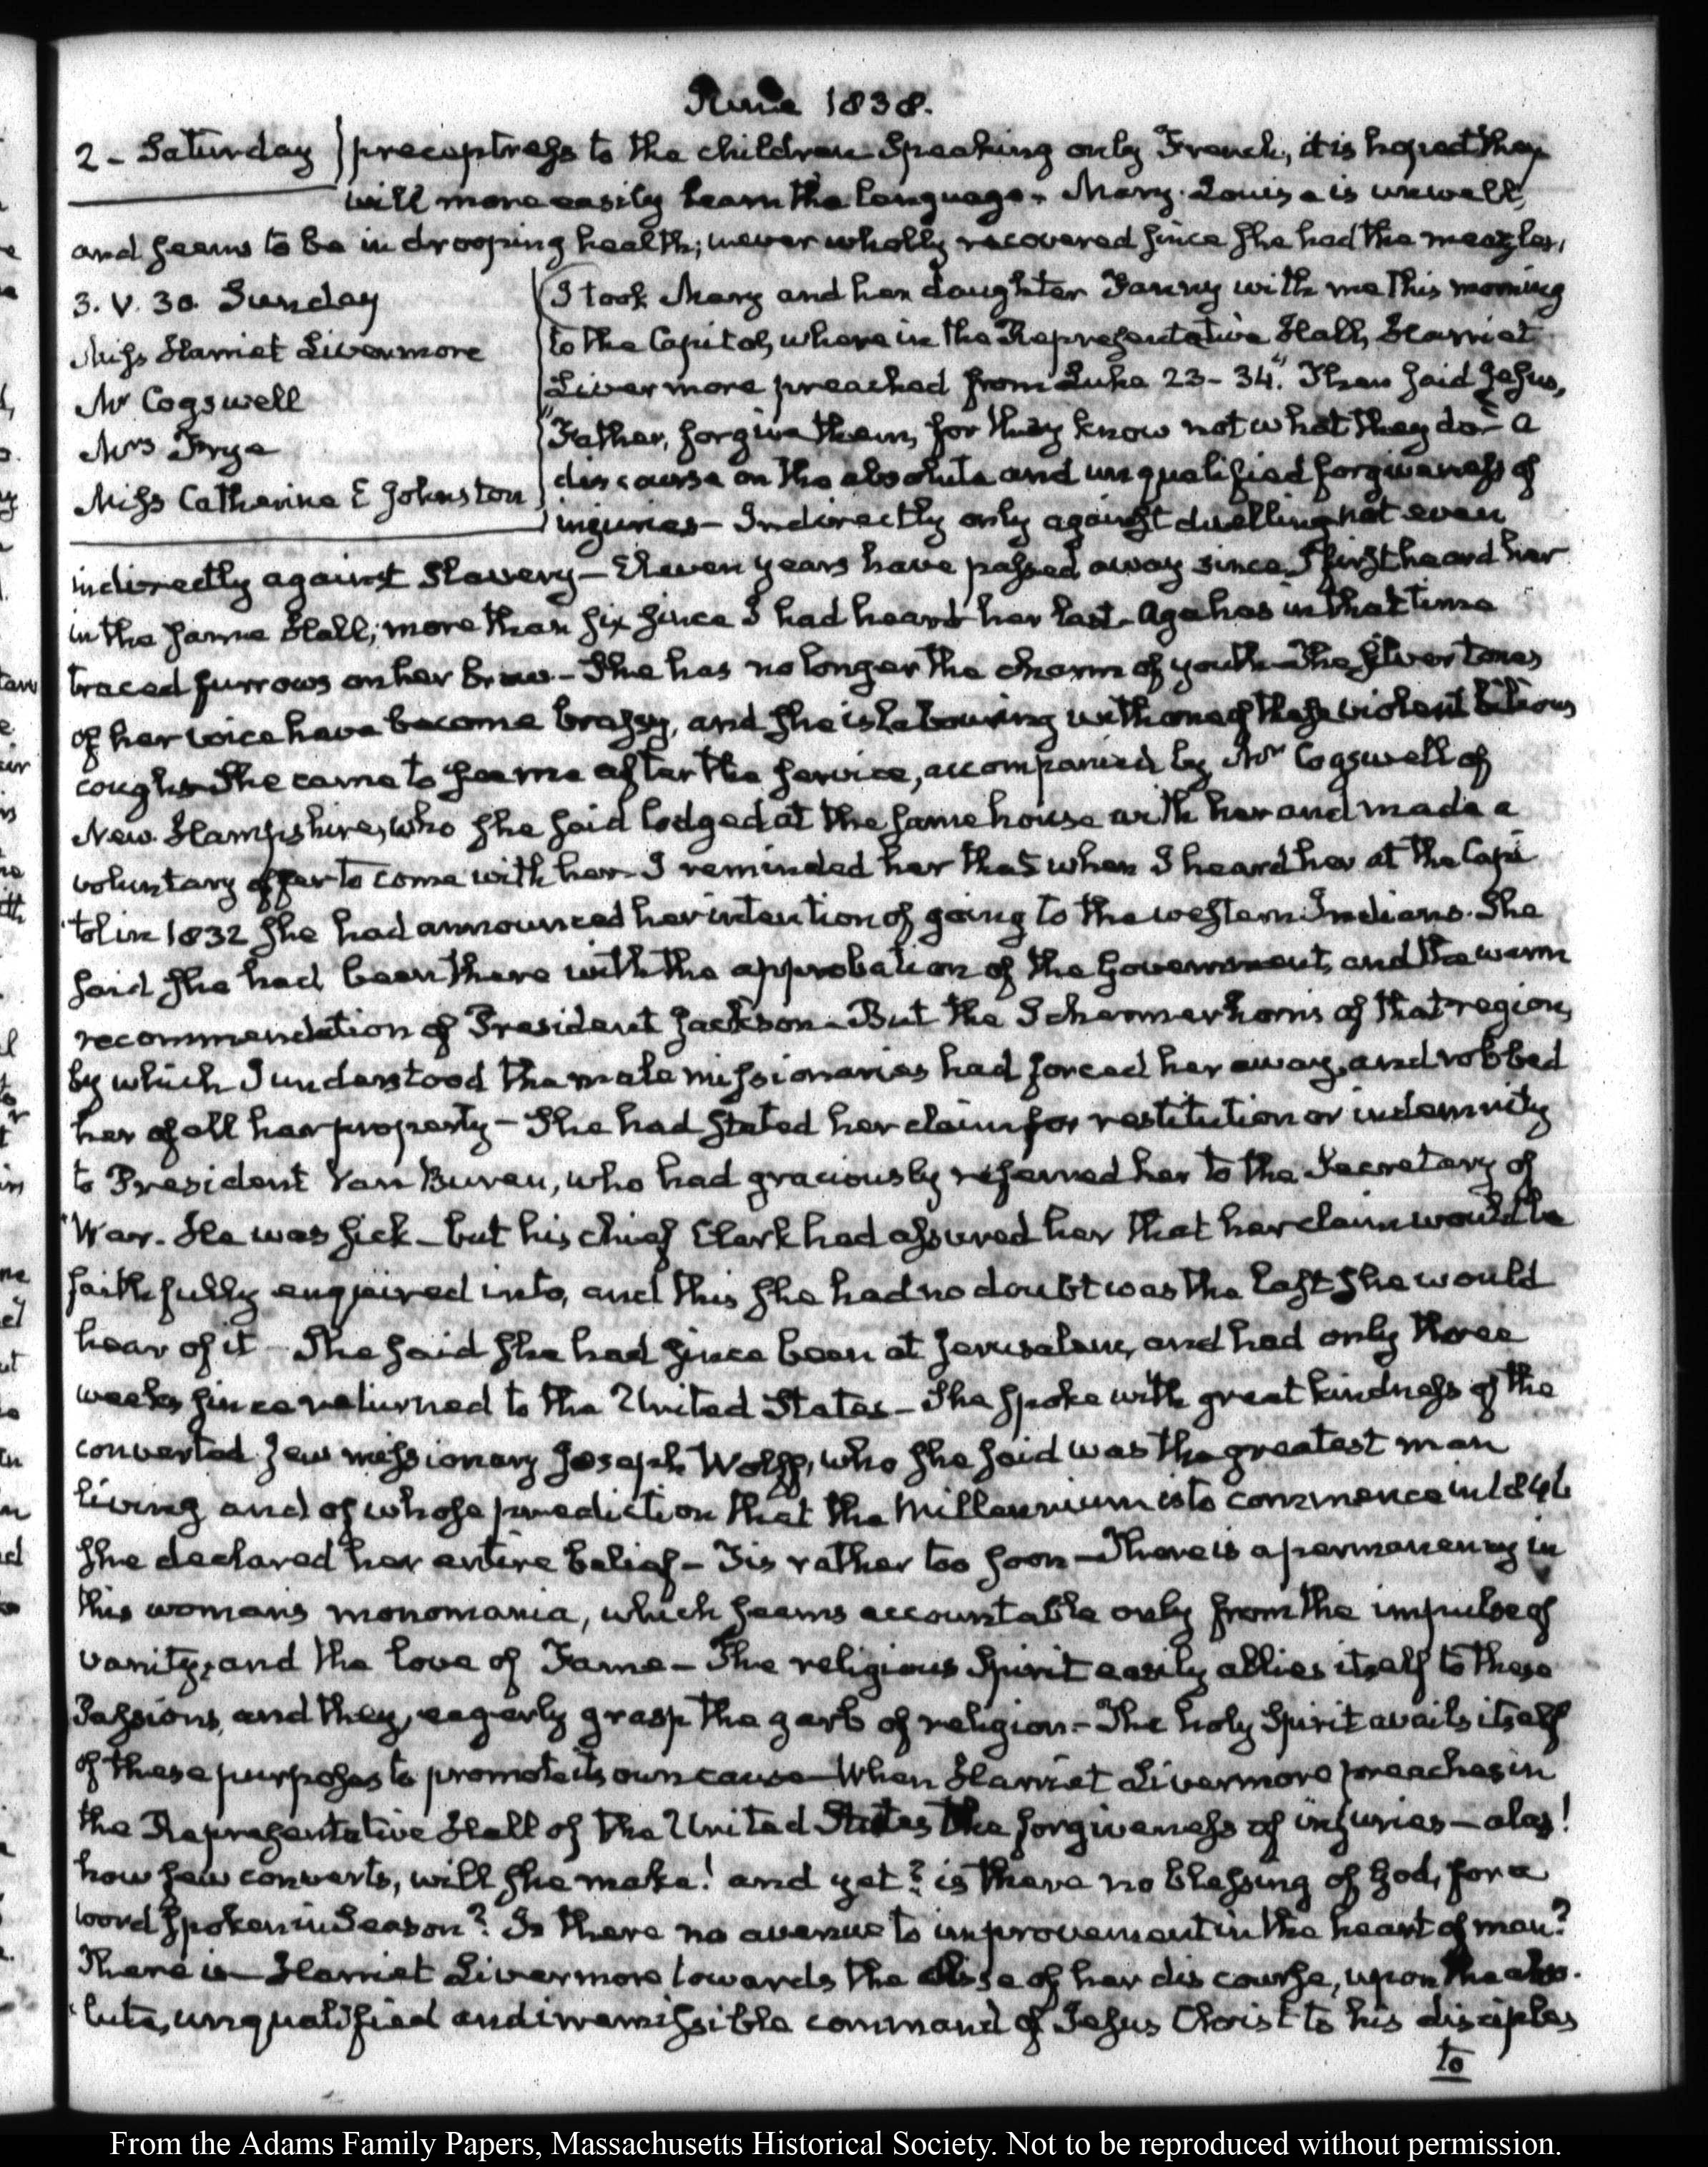 June 1838.
2 - Saturday
preceptress to the children Speaking only French, it is hoped they
will more easily learn the language. Mary Louisa is unwell,
and seems to be in drooping health; never wholly recovered since she had the measles.
3. V. 30. Sunday
Miss Harriet Livermore
Mr Cogswell
Mrs Frye
Miss Catherine E Johnston
I took Mary and her daughter Fanny with me this morning
to the Capitol, where in the Representative Hall, Harriet
Livermore preached from Luke 23-34. "Then said Jesus,
"Father, forgive them, for they know not what they do - a
discourse on the absolute and unqualified forgiveness of
injuries - Indirectly only against duelling not even
indirectly against Slavery - Eleven years have passed away since I first heard her
in the same Hall; more than six since I had heard her last - Age has in that time
traced furrows on her brow - She has no longer the charm of youth - The silver tones
of her voice have become brassy, and she is labouring with one of these violent bilious
coughs - She came to see me after the service, accompanied by Mr Cogswell of
New Hampshire, who she said lodged at the same house with her and made a
voluntary offer to come with her. I reminded her that when I heard her at the Capi
"tol in 1832 she had announced her intention of going to the western Indians. She
said she had been there with the approbation of the Government, and the warm
recommendation of President Jackson - But the Schermerhorns of that region,
by which I understood the male missionaries had forced her away, and robbed
her of all her property - She had stated her claim for restitution or indemnity
to President Van Buren, who had graciously referred her to the Secretary of
War. He was sick - but his chief Clerk had assured her that her claim would be
faithfully enquired into, and this she had no doubt was the last she would
hear of it - She said she had since been at Jerusalem, and had only three
weeks since returned to the United States - She spoke with great kindness of the
converted Jew missionary Joseph Wolff, who she said was the greatest man
living and of whose prediction that the Millennium is to commence in 1846
she declared her entire belief - Tis rather too soon - There is a permanency in
this woman's monomania, which seems accountable only from the impulse of
vanity, and the love of Fame - The religious Spirit easily allies itself to these
Passions, and they, eagerly grasp the garb of religion - The holy Spirit avails itself
of these purposes to promote its own cause - When Harriet Livermore preaches in
the Representative Hall of the United States the forgiveness of injuries - alas!
how few converts, will she make! and yet? is there no blessing of God, for a
word spoken in Season? Is there no avenue to improvement in the heart of man?
There is - Harriet Livermore towards the close of her discourse, upon the abso
"lute, unqualified and irremissible command of Jesus Christ to his disciples
to
From the Adams Family Papers, Massachusetts Historical Society. Not to be reproduced without permission.